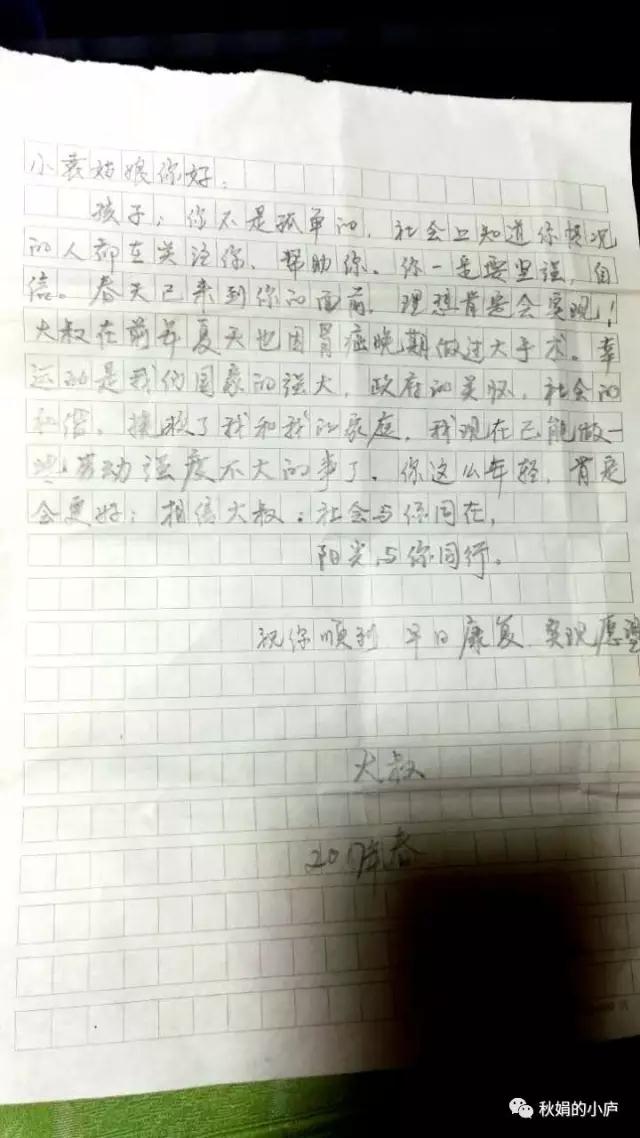 小袁姑娘你好：
孩子：你不是孤单的，社会上知道你情况
的人都在关注你、帮助你。你一定要坚强，自
信。春天已来到你的面前，理想肯定会实现！
大叔在前年夏天也因胃癌晚期做过大手术。幸
运的是我们国家的强大，政府的关怀，社会的
，拯救了我和我的家庭，我现在已能做一
些劳动强度不大的事了。你这么年轻，肯定
会更好；相信大叔：社会与你同在，
阳光与你同行。
祝你顺利 早日康复 实现愿望
大叔
2017年春
秋娟的小庐